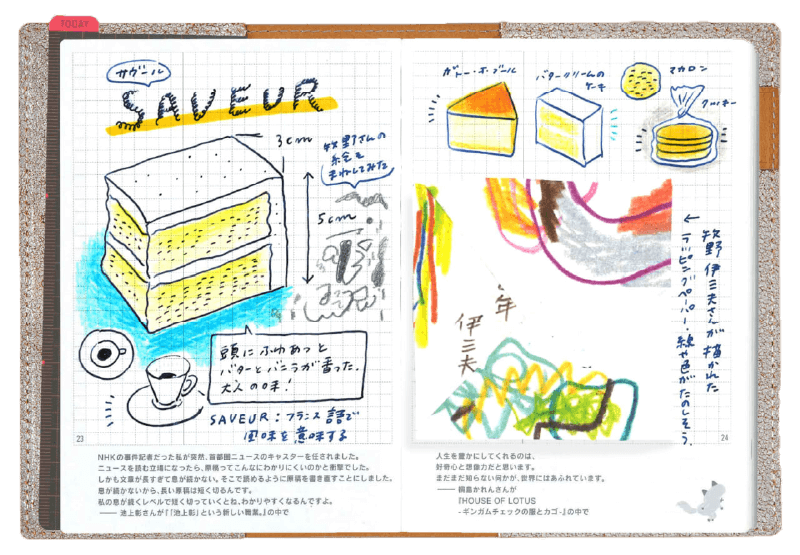 TODAY
サヴール
SAVEUR
3cm
牧野さんの
絵を
まねしてみた
5cm
頭にふわぁっと
バターとバニラが香った。
大人の味!
SAVEUR:フランス語で
風味を意味する
23
NHKの事件記者だった私が突然、首都圏ニュースのキャスターを任されました。
ニュースを読む立場になったら、原稿ってこんなにわかりにくいのかと衝撃でした。
しかも文章が長すぎて息が続かない。そこで読めるように原稿を書き直すことにしました。
息が続かないから、長い原稿は短く切るんです。
私の息が続くレベルで短く切っていくとね、わかりやすくなるんですよ。
—— 池上彰さんが「『池上彰』という新しい職業。」の中で
ガトー・オ・ブール
バタークリームの
ケーキ
マカロン
クッキー
年
伊三夫
← 牧野伊三夫さんが描かれた
ラッピングペーパー・線や色がたのしそう。
24
人生を豊かにしてくれるのは、
好奇心と想像力だと思います。
まだまだ知らない何かが、世界にはあふれています。
—— 桐島かれんさんが
『HOUSE OF LOTUS
-ギンガムチェックの服とカゴ-』の中で